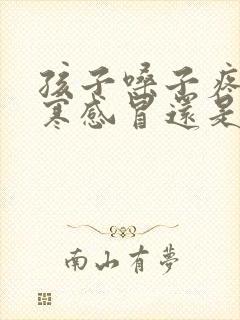 孩子嗓子疼
寒感冒還是
南山有夢